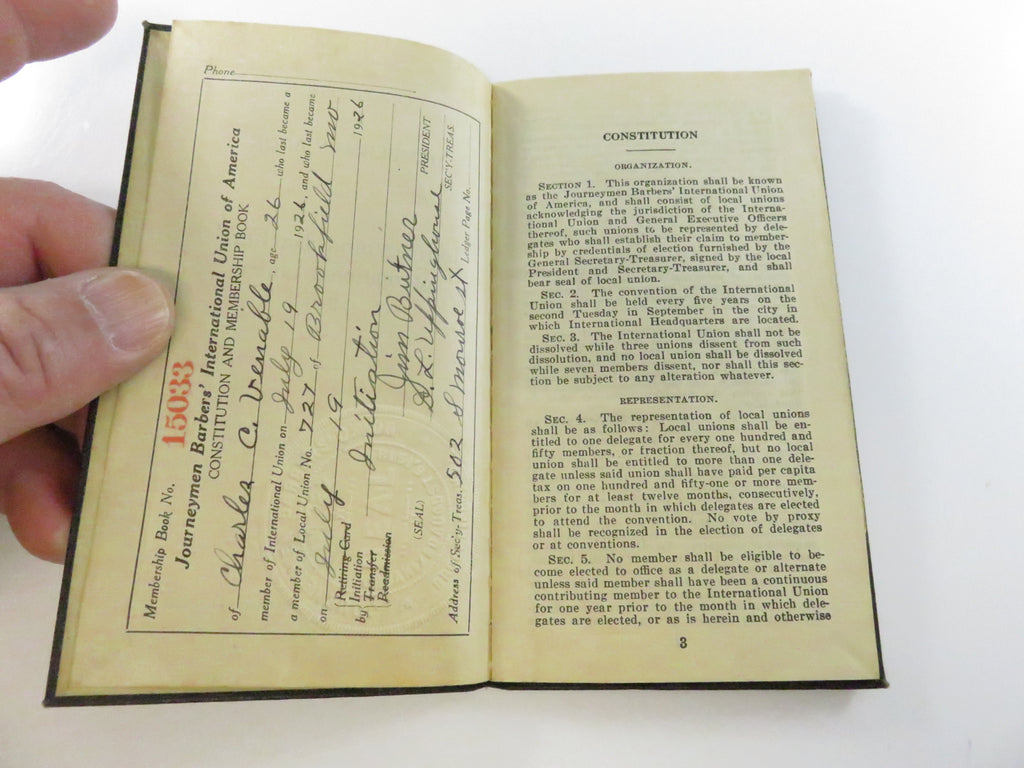 Phone
Membership Book No. 15033
Journeymen Barbers' International Union of America
CONSTITUTION AND MEMBERSHIP BOOK
of Charles C. Venable, age 26 who last became a
member of International Union on July 19 1926, and who last became
a member of Local Union No. 727 of Brookfield Mo
on July 19 1926
Retiring Card
Initiation
by Transfer Initiation
Readmission
Jim Bitner PRESIDENT
(SEAL) SEC'Y-TREAS.
Address of Sec'y-Treas. 502 S Monroe st Ledger Page No.
CONSTITUTION
ORGANIZATION.
SECTION 1. This organization shall be known
as the Journeymen Barbers' International Union
of America, and shall consist of local unions
acknowledging the jurisdiction of the Interna-
tional Union and General Executive Officers
thereof, such unions to be represented by dele-
gates who shall establish their claim to member-
ship by credentials of election furnished by the
General Secretary-Treasurer, signed by the local
President and Secretary-Treasurer, and shall
bear seal of local union.
SEC. 2. The convention of the International
Union shall be held every five years on the
second Tuesday in September in the city in
which International Headquarters are located.
SEC. 3. The International Union shall not be
dissolved while three unions dissent from such
dissolution, and no local union shall be dissolved
while seven members dissent, nor shall this sec-
tion be subject to any alteration whatever.
REPRESENTATION.
SEC. 4. The representation of local unions
shall be as follows: Local unions shall be en-
titled to one delegate for every one hundred and
fifty members, or fraction thereof, but no local
union shall be entitled to more than one dele-
gate unless said union shall have paid per capita
tax on one hundred and fifty-one or more mem-
bers for at least twelve months, consecutively,
prior to the month in which delegates are elected
to attend the convention. No vote by proxy
shall be recognized in the election of delegates
or at conventions.
SEC. 5. No member shall be eligible to be-
come elected to office as a delegate or alternate
unless said member shall have been a continuous
contributing member to the International Union
for one year prior to the month in which dele-
gates are elected, or as is herein and otherwise
3